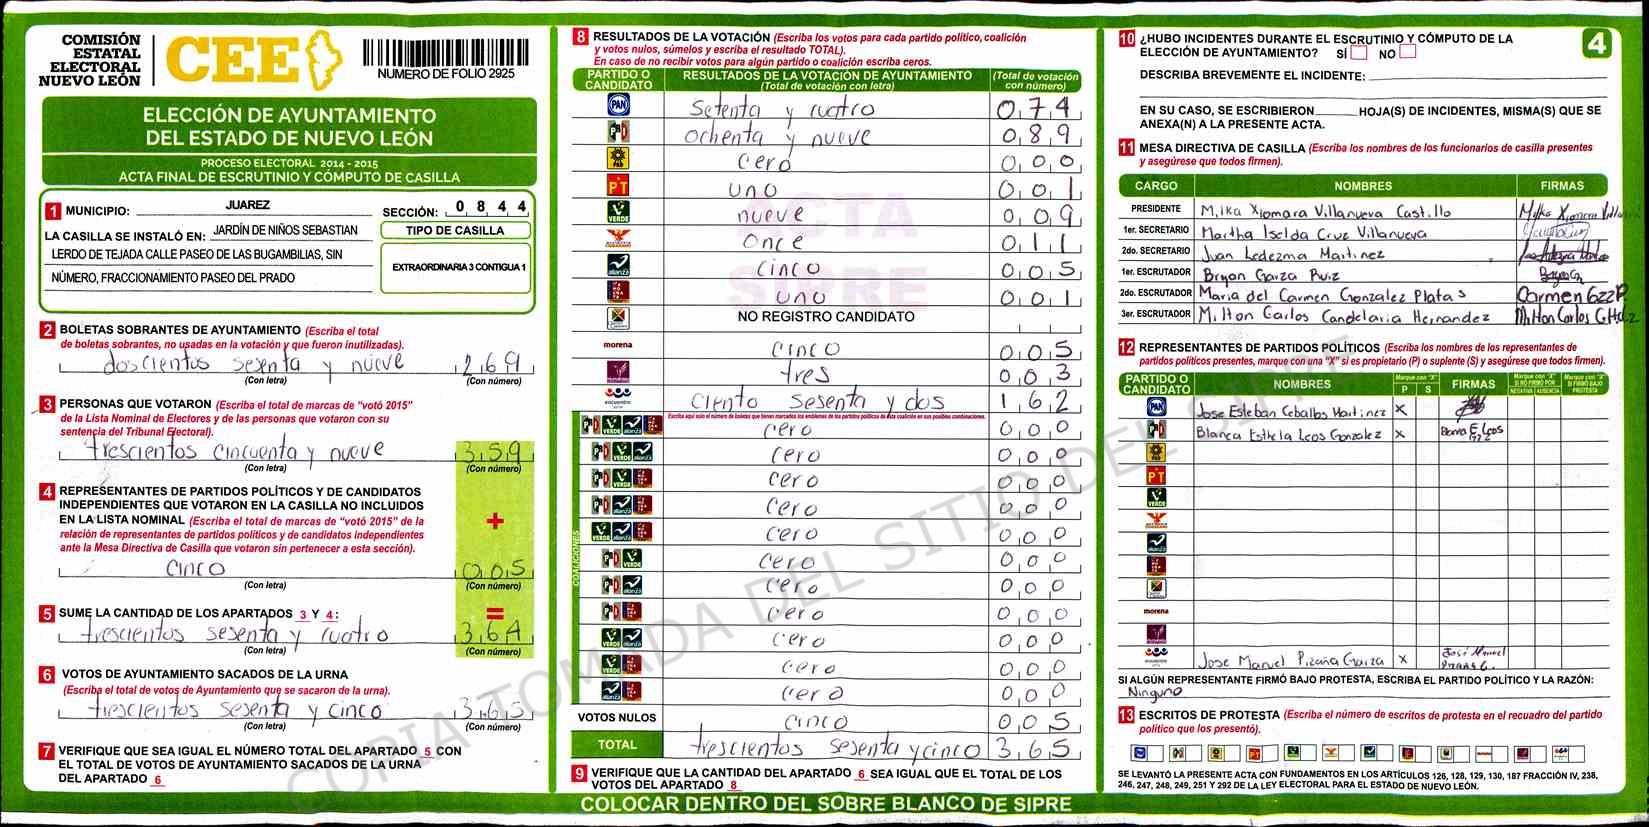 COMISIÓN
ESTATAL
ELECTORAL
NUEVO LEÓN
CEE
NUMERO DE FOLIO 2925
ELECCIÓN DE AYUNTAMIENTO
DEL ESTADO DE NUEVO LEÓN
PROCESO ELECTORAL 2014 - 2015
ACTA FINAL DE ESCRUTINIO Y CÓMPUTO DE CASILLA
1 MUNICIPIO: JUAREZ SECCIÓN: 0 8 4 4
LA CASILLA SE INSTALÓ EN: JARDÍN DE NIÑOS SEBASTIAN
LERDO DE TEJADA CALLE PASEO DE LAS BUGAMBILIAS, SIN
NÚMERO, FRACCIONAMIENTO PASEO DEL PRADO
TIPO DE CASILLA
EXTRAORDINARIA 3 CONTIGUA 1
2 BOLETAS SOBRANTES DE AYUNTAMIENTO (Escriba el total
de boletas sobrantes, no usadas en la votación y que fueron inutilizadas).
doscientos sesenta y nueve 2 6 9
(Con letra) (Con número)
3 PERSONAS QUE VOTARON (Escriba el total de marcas de "votó 2015"
de la Lista Nominal de Electores y de las personas que votaron con su
sentencia del Tribunal Electoral).
trescientos cincuenta y nueve 3 5 9
(Con letra) (Con número)
4 REPRESENTANTES DE PARTIDOS POLÍTICOS Y DE CANDIDATOS
INDEPENDIENTES QUE VOTARON EN LA CASILLA NO INCLUIDOS
EN LA LISTA NOMINAL (Escriba el total de marcas de "votó 2015" de la
relación de representantes de partidos políticos y de candidatos independientes
ante la Mesa Directiva de Casilla que votaron sin pertenecer a esta sección).
+
cinco 0 0 5
(Con letra) (Con número)
5 SUME LA CANTIDAD DE LOS APARTADOS 3 Y 4: =
trescientos sesenta y cuatro 3 6 4
(Con letra) (Con número)
6 VOTOS DE AYUNTAMIENTO SACADOS DE LA URNA
(Escriba el total de votos de Ayuntamiento que se sacaron de la urna).
trescientos sesenta y cinco 3 6 5
(Con letra) (Con número)
7 VERIFIQUE QUE SEA IGUAL EL NÚMERO TOTAL DEL APARTADO 5 CON
EL TOTAL DE VOTOS DE AYUNTAMIENTO SACADOS DE LA URNA
DEL APARTADO 6
8 RESULTADOS DE LA VOTACIÓN (Escriba los votos para cada partido político, coalición
y votos nulos, súmelos y escriba el resultado TOTAL).
En caso de no recibir votos para algún partido o coalición escriba ceros.
PARTIDO O CANDIDATO RESULTADOS DE LA VOTACIÓN DE AYUNTAMIENTO (Total de votación con letra) (Total de votación con número)
PAN setenta y cuatro 0 7 4
PRI ochenta y nueve 0 8 9
PRD cero 0 0 0
PT uno 0 0 1
VERDE nueve 0 0 9
once 0 1 1
alianza cinco 0 0 5
uno 0 0 1
NO REGISTRO CANDIDATO
morena cinco 0 0 5
tres 0 0 3
encuentro ciento sesenta y dos 1 6 2
Escriba aquí solo el número de boletas que tienen marcados los emblemas de los partidos políticos de ésta coalición en sus posibles combinaciones.
COALICIONES
cero 0 0 0
cero 0 0 0
cero 0 0 0
cero 0 0 0
cero 0 0 0
cero 0 0 0
cero 0 0 0
cero 0 0 0
cero 0 0 0
cero 0 0 0
cero 0 0 0
VOTOS NULOS cinco 0 0 5
TOTAL trescientos sesenta y cinco 3 6 5
9 VERIFIQUE QUE LA CANTIDAD DEL APARTADO 6 SEA IGUAL QUE EL TOTAL DE LOS
VOTOS DEL APARTADO 8
ACTA
SIPRE
COPIA TOMADA DEL SITIO DEL SIPRE
COLOCAR DENTRO DEL SOBRE BLANCO DE SIPRE
10 ¿HUBO INCIDENTES DURANTE EL ESCRUTINIO Y CÓMPUTO DE LA
ELECCIÓN DE AYUNTAMIENTO? SÍ NO
4
DESCRIBA BREVEMENTE EL INCIDENTE:
EN SU CASO, SE ESCRIBIERON HOJA(S) DE INCIDENTES, MISMA(S) QUE SE
ANEXA(N) A LA PRESENTE ACTA.
11 MESA DIRECTIVA DE CASILLA (Escriba los nombres de los funcionarios de casilla presentes
y asegúrese que todos firmen).
CARGO NOMBRES FIRMAS
PRESIDENTE Milka Xiomara Villanueva Castillo Milka Xiomara
1er. SECRETARIO Martha Iselda Cruz Villanueva
2do. SECRETARIO Juan Ledezma Martinez
1er. ESCRUTADOR Bryan Garza Ruiz
2do. ESCRUTADOR Maria del Carmen Gonzalez Platas Carmen Gzz P.
3er. ESCRUTADOR Milton Carlos Candelaria Hernandez Milton Carlos
12 REPRESENTANTES DE PARTIDOS POLÍTICOS (Escriba los nombres de los representantes de
partidos políticos presentes, marque con una "X" si es propietario (P) o suplente (S) y asegúrese que todos firmen).
PARTIDO O CANDIDATO NOMBRES Marque con "X" P S FIRMAS Marque con "X" SI NO FIRMÓ POR NEGATIVA AUSENCIA Marque con "X" SI FIRMÓ BAJO PROTESTA
PAN Jose Esteban Ceballos Martinez X
PRI Blanca Esthela Leos Gonzalez X
PRD
PT
VERDE
alianza
morena
encuentro Jose Manuel Pizaña Garza X José Manuel
SI ALGÚN REPRESENTANTE FIRMÓ BAJO PROTESTA, ESCRIBA EL PARTIDO POLÍTICO Y LA RAZÓN:
Ninguno
13 ESCRITOS DE PROTESTA (Escriba el número de escritos de protesta en el recuadro del partido
político que los presentó).
SE LEVANTÓ LA PRESENTE ACTA CON FUNDAMENTOS EN LOS ARTÍCULOS 126, 128, 129, 130, 187 FRACCIÓN IV, 238,
246, 247, 248, 249, 251 Y 292 DE LA LEY ELECTORAL PARA EL ESTADO DE NUEVO LEÓN.